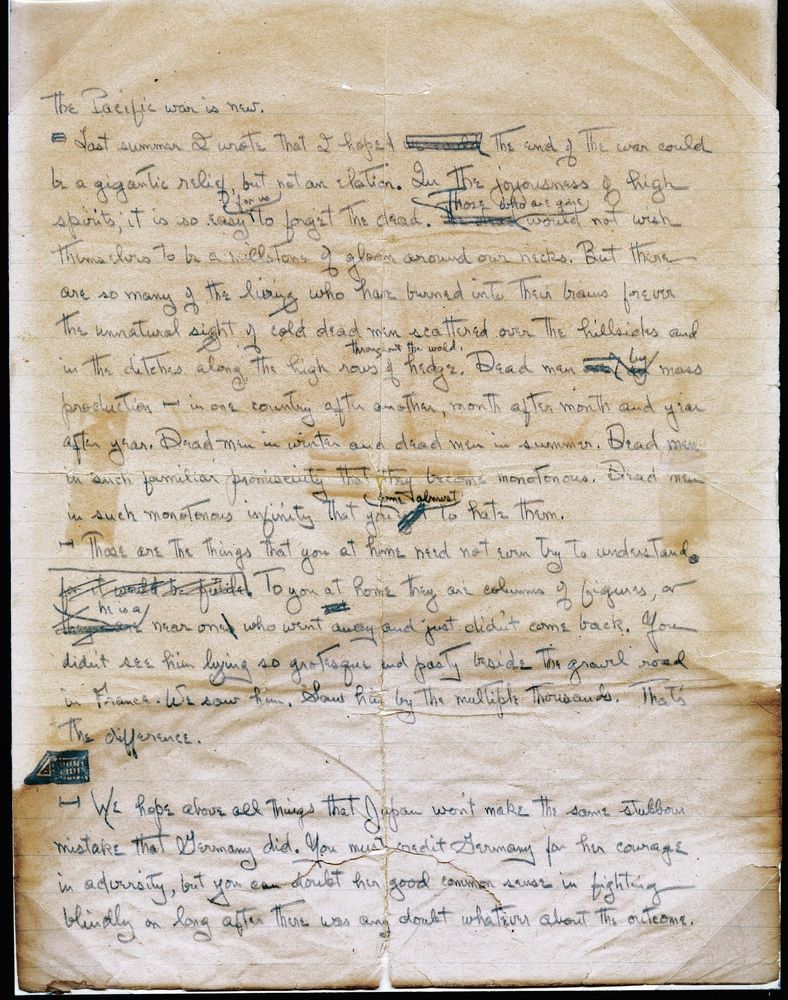 The Pacific war is new.
Last summer I wrote that I hoped the end of the war could
be a gigantic relief, but not an elation. In the joyousness of high
for us Those who are gone
spirits, it is so easy to forget the dead. would not wish
themselves to be a millstone of gloom around our necks. But there
are so many of the living who have burned into their brains forever
the unnatural sight of cold dead men scattered over the hillsides and
throughout the world.
in the ditches along the high rows of hedge. Dead men by mass
production — in one country after another, month after month and year
after year. Dead men in winter and dead men in summer. Dead men
in such familiar promiscuity that they become monotonous. Dead men
come almost
in such monotonous infinity that you to hate them.
— Those are the things that you at home need not even try to understand.
for it would be futile. To you at home they are columns of figures, or
he is a
near one who went away and just didn't come back. You
didn't see him lying so grotesque and pasty beside the gravel road
in France. We saw him. Saw him by the multiple thousands. That's
the difference.
— We hope above all things that Japan won't make the same stubborn
mistake that Germany did. You must credit Germany for her courage
in adversity, but you can doubt her good common sense in fighting
blindly on long after there was any doubt whatever about the outcome.